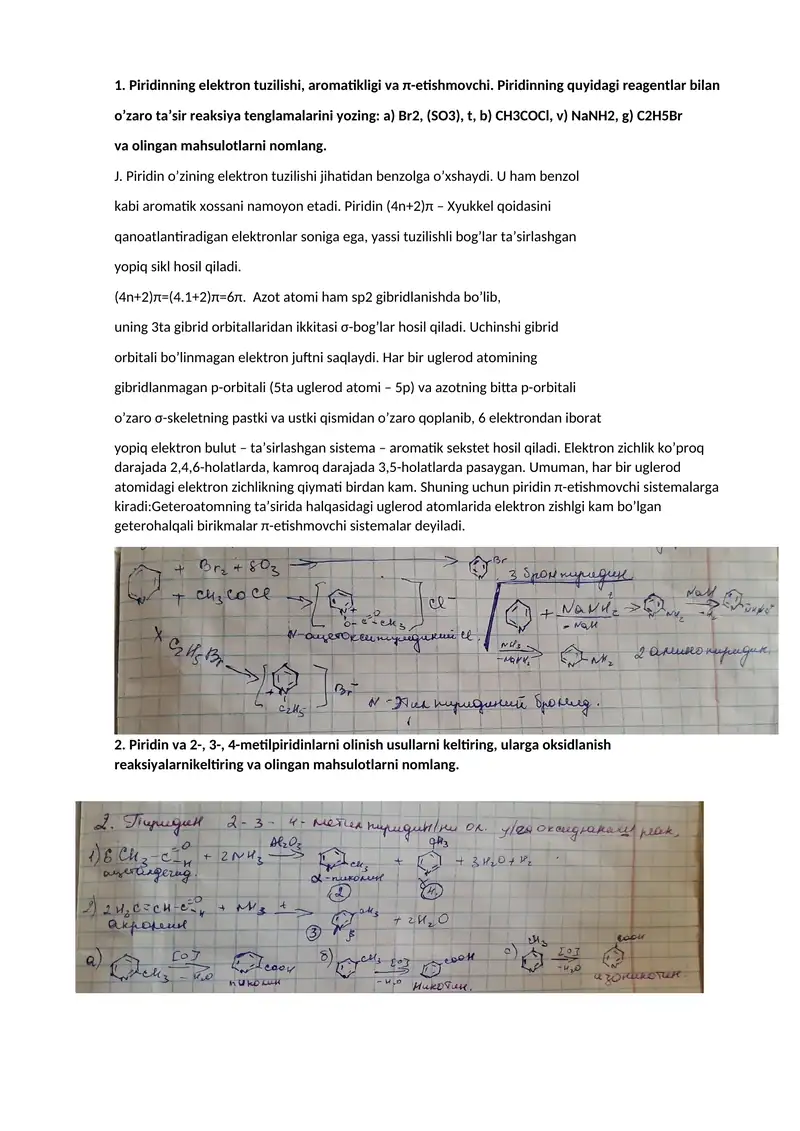 1. Piridinning elektron tuzilishi, aromatikligi va π-etishmovchi. Piridinning quyidagi reagentlar bilan
o’zaro ta’sir reaksiya tenglamalarini yozing: a) Br2, (SO3), t, b) CH3COCl, v) NaNH2, g) C2H5Br
va olingan mahsulotlarni nomlang.
J. Piridin o’zining elektron tuzilishi jihatidan benzolga o’xshaydi. U ham benzol
kabi aromatik xossani namoyon etadi. Piridin (4n+2)π – Xyukkel qoidasini
qanoatlantiradigan elektronlar soniga ega, yassi tuzilishli bog’lar ta’sirlashgan
yopiq sikl hosil qiladi.
(4n+2)π=(4.1+2)π=6π.  Azot atomi ham sp2 gibridlanishda bo’lib,
uning 3ta gibrid orbitallaridan ikkitasi σ-bog’lar hosil qiladi. Uchinshi gibrid
orbitali bo’linmagan elektron juftni saqlaydi. Har bir uglerod atomining
gibridlanmagan p-orbitali (5ta uglerod atomi – 5p) va azotning bitta p-orbitali
o’zaro σ-skeletning pastki va ustki qismidan o’zaro qoplanib, 6 elektrondan iborat
yopiq elektron bulut – ta’sirlashgan sistema – aromatik sekstet hosil qiladi. Elektron zichlik ko’proq
darajada 2,4,6-holatlarda, kamroq darajada 3,5-holatlarda pasaygan. Umuman, har bir uglerod
atomidagi elektron zichlikning qiymati birdan kam. Shuning uchun piridin π-etishmovchi sistemalarga
kiradi:Geteroatomning ta’sirida halqasidagi uglerod atomlarida elektron zishlgi kam bo’lgan
geterohalqali birikmalar π-etishmovchi sistemalar deyiladi.
+ Br2 + SO3 Br
3 бромпиридин
+ CH3COCl Cl⁻
N-ацетоксипиридиний Cl.
+ NaNH2 - NaH NH2 NaH
NH3 NH2 2 аминопиридин.
C2H5Br C2H5 Br⁻
N-Этилпиридиний бромид.
2. Piridin va 2-, 3-, 4-metilpiridinlarni olinish usullarni keltiring, ularga oksidlanish
reaksiyalarnikeltiring va olingan mahsulotlarni nomlang.
2. Пиридин 2-3-4-метилпиридин/ни ол.
1) 6 CH3-C=O H + 2NH3 Al2O3 CH3 + CH3 + 3H2O + H2
ацетальдегид. α-пиколин
2 4
2) 2H2C=CH-C=O H + NH3 t CH3 + 2H2O
акролеин 3 β
а) CH3 [O] - H2O COOH
пиколин
б) CH3 [O] - H2O COOH
никотин.
с) CH3 [O] - H2O COOH
изоникотин.